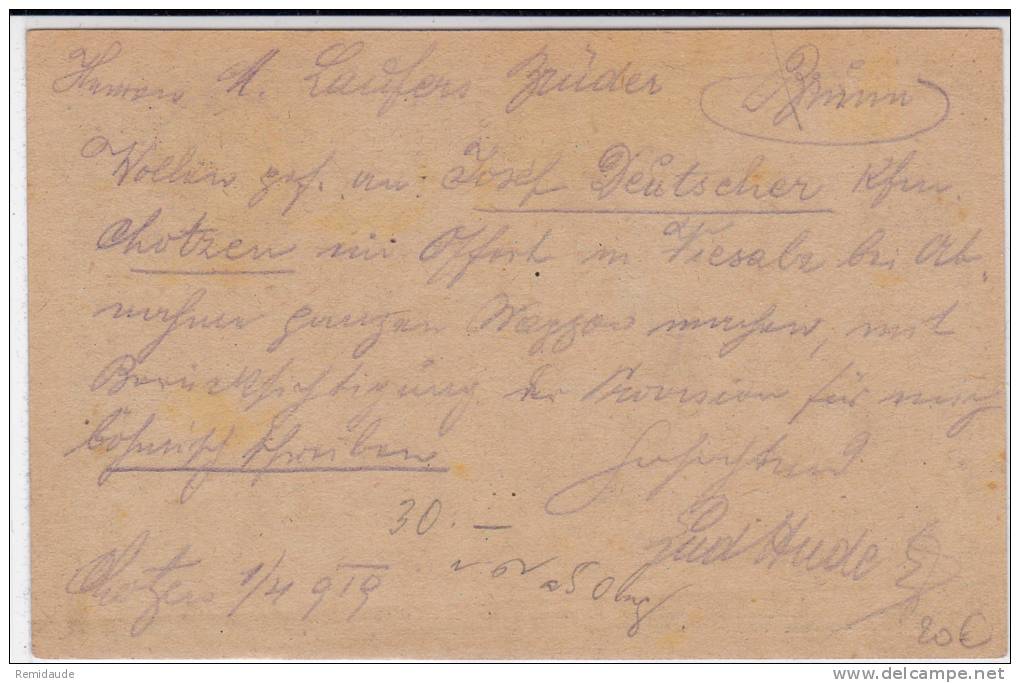 Herren M. Laufers Brüder Brünn
Wollen gef. an Josef Deutscher Kfm.
Chotzen die Offert in Viesalz bei Ab-
nahme ganzen Waggon machen, mit
Berücksichtigung der Provision für mich
böhmisch schreiben
Hochachtend
30.—
Lud Hude
Chotzen 1/4 919
20€
Remidaude
www.delcampe.net